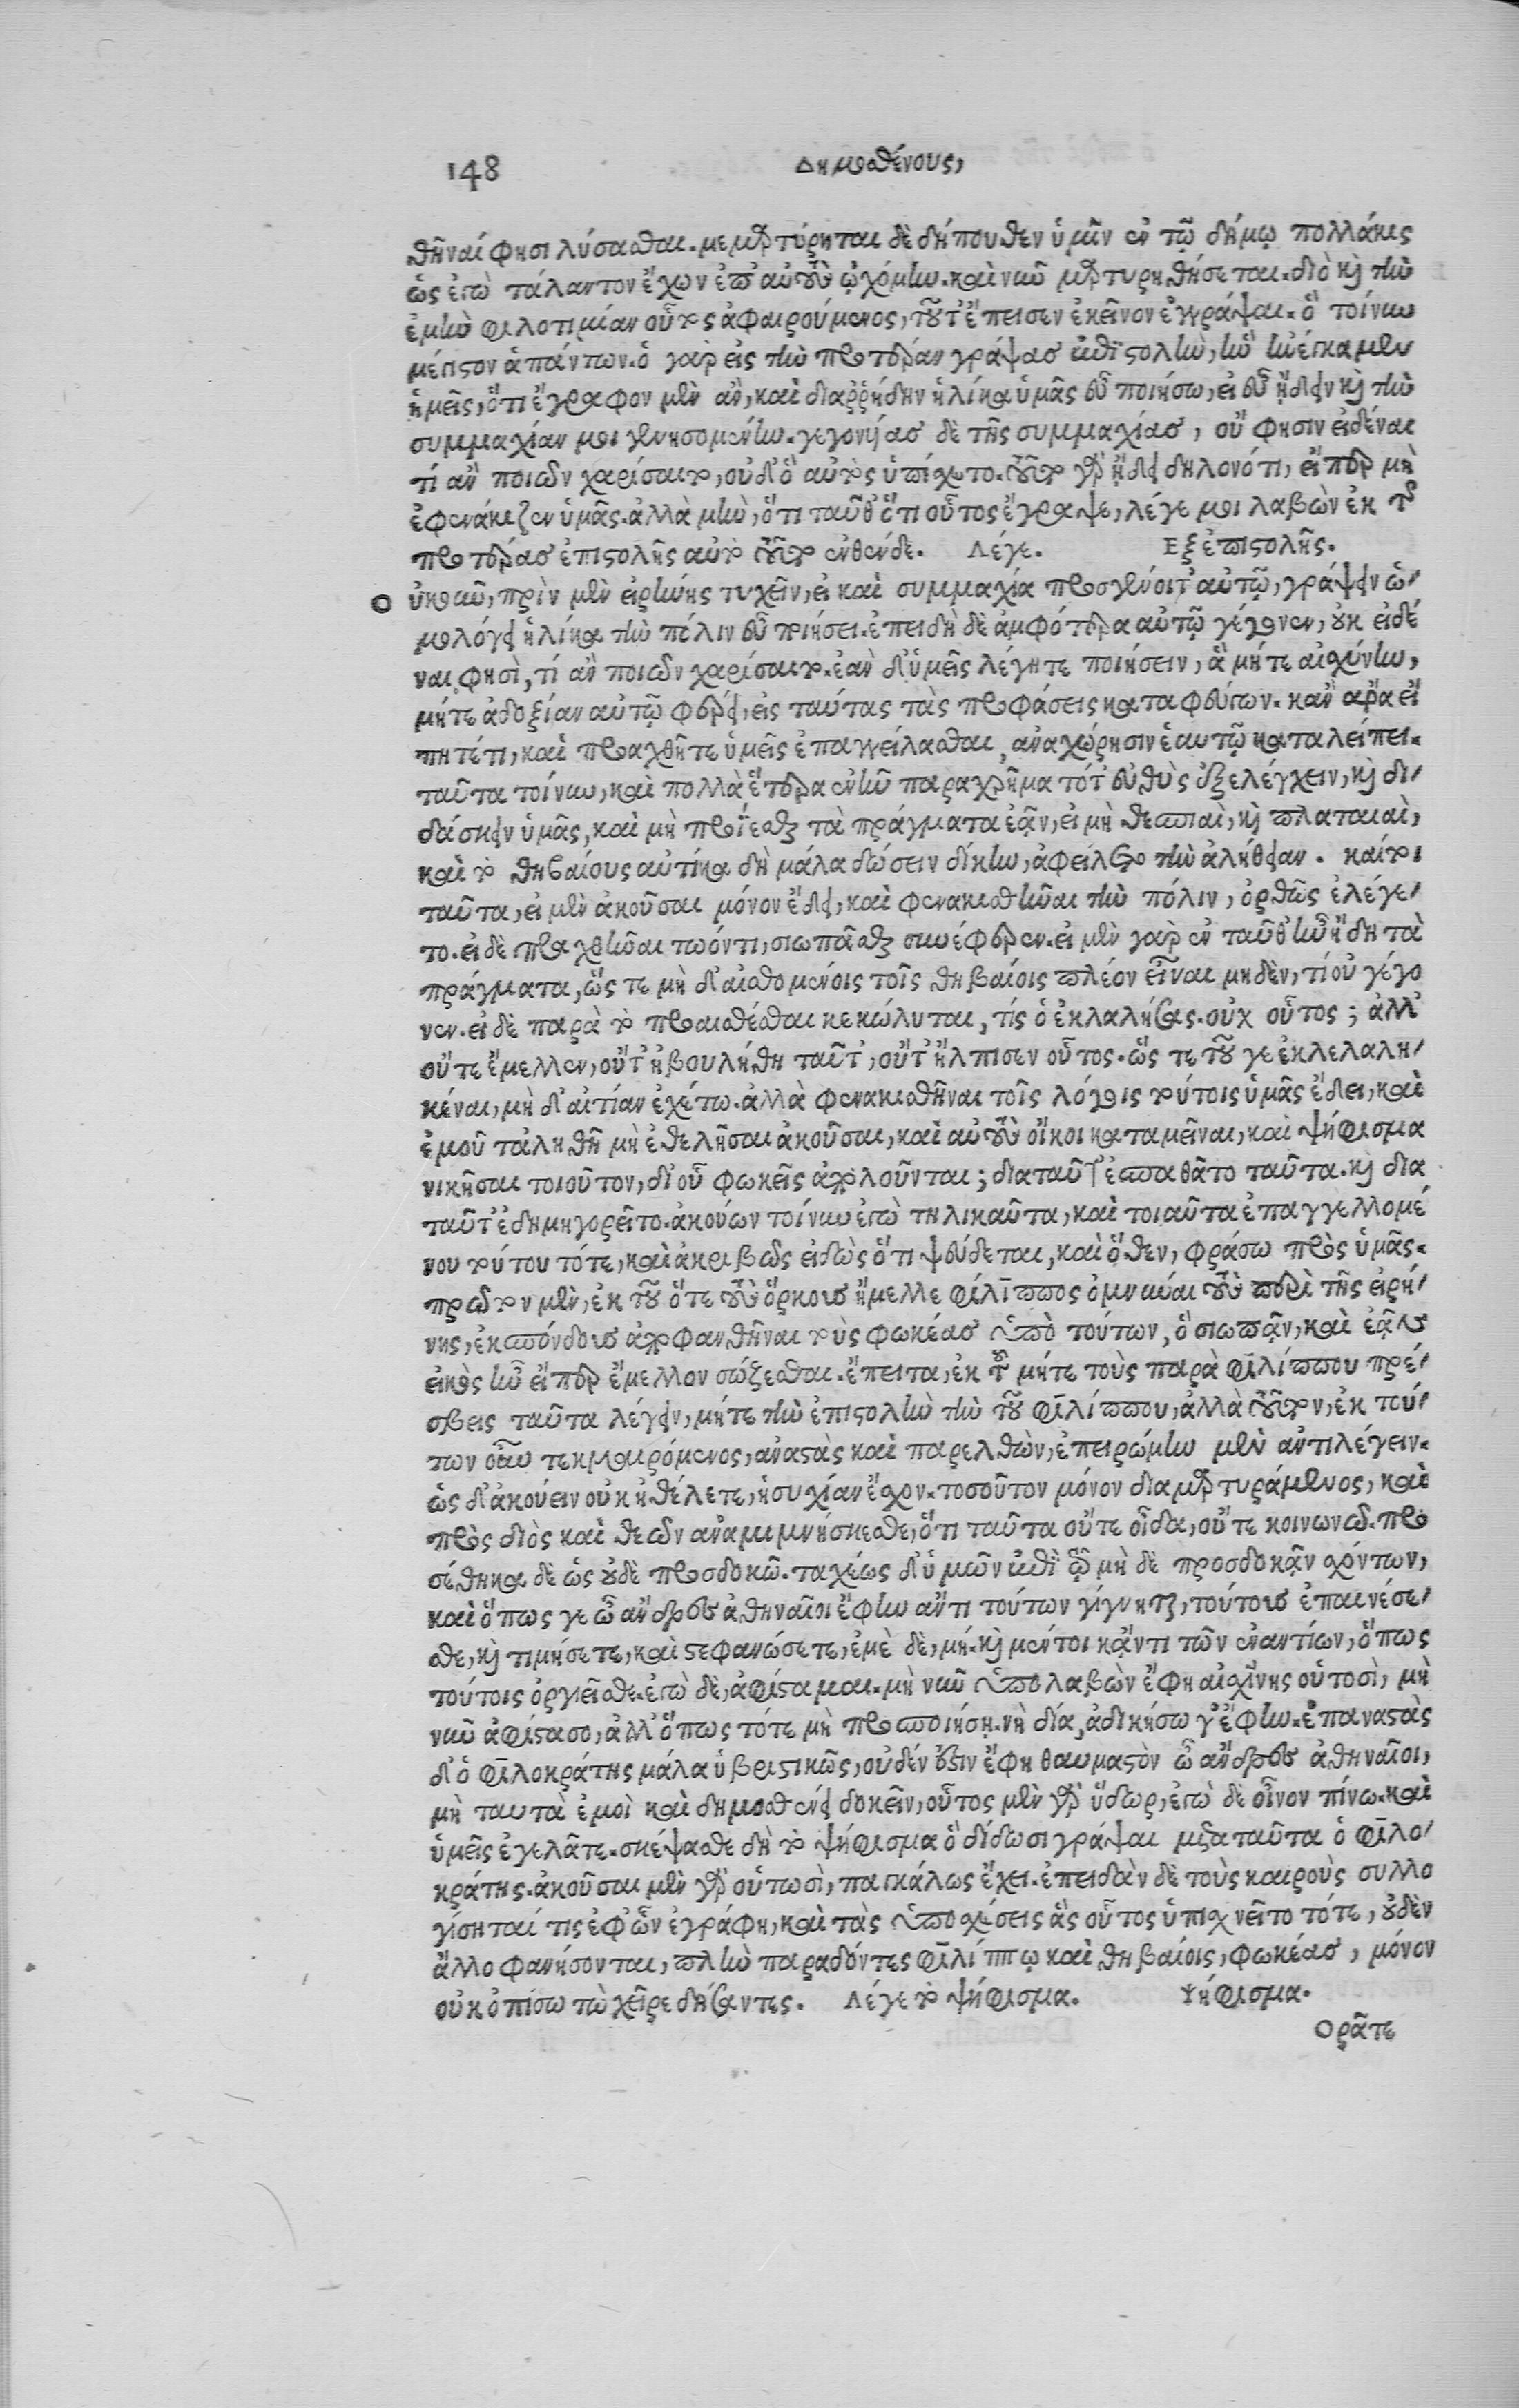 148 Δημοσθένους,
θῆναί φησι λύσασθαι. μεμαρτύρηται δὲ δήπουθεν ὑμῖν ἐν τῷ δήμῳ πολλάκις
ὡς ἐγὼ τάλαντον ἔχων ἐπ' αὐτοὺς ᾠχόμην. καὶ νῦν μαρτυρηθήσεται. διὸ καὶ τὴν
ἐμὴν φιλοτιμίαν οὗτος ἀφαιρούμενος, τοῦτ' ἔπεισεν ἐκεῖνον ἐγγράψαι. ὃ τοίνυν
μέγιστον ἁπάντων. ὁ γὰρ εἰς τὴν προτέραν γράψας ἐπιστολὴν, ἣν ἠνέγκαμεν
ἡμεῖς, ὅτι ἔγραφον μὲν ἂν, καὶ διαῤῥήδην ἡλίκα ὑμᾶς εὖ ποιήσω, εἰ εὖ ᾔδειν καὶ τὴν
συμμαχίαν μοι γενησομένην. γεγονυίας δὲ τῆς συμμαχίας, οὔ φησιν εἰδέναι
τί ἂν ποιῶν χαρίσαιτο, οὐδ' ὃ αὐτὸς ὑπέσχετο. τοῦτο γὰρ ᾔδει δηλονότι, εἴπερ μὴ
ἐφενάκιζεν ὑμᾶς. ἀλλὰ μὴν, ὅτι ταῦθ' ὅτι οὗτος ἔγραψε, λέγε μοι λαβὼν ἐκ τῆς
προτέρας ἐπιστολῆς αὐτὸ τοῦτο ἐνθένδε. Λέγε. Ἐξ ἐπιστολῆς.
Οὐκοῦν, πρὶν μὲν εἰρήνης τυχεῖν, εἰ καὶ συμμαχία προσγένοιτ' αὐτῷ, γράψειν ὡ-
μολόγει ἡλίκα τὴν πόλιν εὖ ποιήσει. ἐπειδὴ δὲ ἀμφότερα αὐτῷ γέγονεν, οὐκ εἰδέ
ναι φησὶ, τί ἂν ποιῶν χαρίσαιτο. ἐὰν δ' ὑμεῖς λέγητε ποιήσειν, ἃ μήτε αἰσχύνην,
μήτε ἀδοξίαν αὐτῷ φέρει, εἰς ταύτας τὰς προφάσεις καταφεύγων. κἂν ἄρα εἴ
πητέ τι, καὶ προαχθῆτε ὑμεῖς ἐπαγγείλασθαι, ἀναχώρησιν ἑαυτῷ καταλείπει.
ταῦτα τοίνυν, καὶ πολλὰ ἕτερα ἐνῆν παραχρῆμα τότ' εὐθὺς ἐξελέγχειν, καὶ δι-
δάσκειν ὑμᾶς, καὶ μὴ προΐεσθαι τὰ πράγματα ἐᾷν, εἰ μὴ θεσπιαὶ, καὶ πλαταιαὶ,
καὶ τὸ θηβαίους αὐτίκα δὴ μάλα δώσειν δίκην, ἀφείλετο τὴν ἀλήθειαν. καίτοι
ταῦτα, εἰ μὲν ἀκοῦσαι μόνον ἔδει, καὶ φενακισθῆναι τὴν πόλιν, ὀρθῶς ἐλέγε-
το. εἰ δὲ πραχθῆναι τῷ ὄντι, σιωπᾶσθαι συνέφερεν. εἰ μὲν γὰρ ἐν ταῦθ' ἦν ἤδη τὰ
πράγματα, ὥς τε μὴ δ' αἰσθομένοις τοῖς θηβαίοις πλέον εἶναι μηδὲν, τί οὐ γέγο
νεν. εἰ δὲ παρὰ τὸ προαισθέσθαι κεκώλυται, τίς ὁ ἐκλαλήσας. οὐχ οὗτος; ἀλλ'
οὔτε ἔμελλεν, οὔτ' ἠβουλήθη ταῦτ', οὔτ' ἤλπισεν οὗτος. ὥς τε τοῦ γε ἐκλελαλη-
κέναι, μὴ δ' αἰτίαν ἐχέτω. ἀλλὰ φενακισθῆναι τοῖς λόγοις τούτοις ὑμᾶς ἔδει, καὶ
ἐμοῦ τἀληθῆ μὴ ἐθελῆσαι ἀκοῦσαι, καὶ αὐτοὺς οἴκοι καταμεῖναι, καὶ ψήφισμα
νικῆσαι τοιοῦτον, δι' οὗ φωκεῖς ἀπολοῦνται; διὰ ταῦτ' ἐσπαθᾶτο ταῦτα. καὶ δια
ταῦτ' ἐδημηγορεῖτο. ἀκούων τοίνυν ἐγὼ τηλικαῦτα, καὶ τοιαῦτα ἐπαγγελλομέ
νου τούτου τότε, καὶ ἀκριβῶς εἰδὼς ὅτι ψεύδεται, καὶ ὅθεν, φράσω πρὸς ὑμᾶς.
πρῶτον μὲν, ἐκ τοῦ ὅτε τοὺς ὅρκους ἤμελλε φίλιππος ὀμνύναι τοὺς περὶ τῆς εἰρή-
νης, ἐκσπόνδους ἀποφανθῆναι τοὺς φωκέας ὑπὸ τούτων, ὃ σιωπᾷν, καὶ ἐᾷν
εἰκὸς ἦν εἴπερ ἔμελλον σώζεσθαι. ἔπειτα, ἐκ τοῦ μήτε τοὺς παρὰ φιλίππου πρέ-
σβεις ταῦτα λέγειν, μήτε τὴν ἐπιστολὴν τὴν τοῦ φιλίππου, ἀλλὰ τοῦτον, ἐκ τού-
των οὖν τεκμαιρόμενος, ἀναστὰς καὶ παρελθὼν, ἐπειρώμην μὲν ἀντιλέγειν.
ὡς δ' ἀκούειν οὐκ ἠθέλετε, ἡσυχίαν ἔχον. τοσοῦτον μόνον διαμαρτυράμενος, καὶ
πρὸς διὸς καὶ θεῶν ἀναμιμνήσκεσθε, ὅτι ταῦτα οὔτε οἶδα, οὔτε κοινωνῶ. προ
σέθηκα δὲ ὡς οὐδὲ προσδοκῶ. ταχέως δ' ὑμῶν ἐπὶ τῷ μὴ δὲ προσδοκᾷν σχόντων,
καὶ ὅπως γε ὦ ἄνδρες ἀθηναῖοι ἔφην ἄν τι τούτων γίγνηται, τούτους ἐπαινέσε-
σθε, καὶ τιμήσετε, καὶ στεφανώσετε, ἐμὲ δὲ, μή. καὶ μέντοι κἄν τι τῶν ἐναντίων, ὅπως
τούτοις ὀργιεῖσθε. ἐγὼ δὲ, ἀφίσταμαι. μὴ νῦν ὑπολαβὼν ἔφη αἰσχίνης οὑτοσὶ, μὴ
νῦν ἀφίστασο, ἀλλ' ὅπως τότε μὴ προσποιήσῃ. νὴ δία, ἀδικήσω γ' ἔφην. ἐπαναστὰς
δ' ὁ φιλοκράτης μάλα ὑβριστικῶς, οὐδέν ἐστιν ἔφη θαυμαστὸν ὦ ἄνδρες ἀθηναῖοι,
μὴ ταυτὰ ἐμοὶ καὶ δημοσθένει δοκεῖν, οὗτος μὲν γὰρ ὕδωρ, ἐγὼ δὲ οἶνον πίνω. καὶ
ὑμεῖς ἐγελᾶτε. σκέψασθε δὴ τὸ ψήφισμα ὃ δίδωσι γράψαι μετὰ ταῦτα ὁ φιλο-
κράτης. ἀκοῦσαι μὲν γὰρ οὑτωσὶ, παγκάλως ἔχει. ἐπειδὰν δὲ τοὺς καιροὺς συλλο
γίσηταί τις ἐφ' ὧν ἐγράφη, καὶ τὰς ὑποσχέσεις ἃς οὗτος ὑπισχνεῖτο τότε, οὐδὲν
ἄλλο φανήσονται, πλὴν παραδόντες φιλίππῳ καὶ θηβαίοις, φωκέας, μόνον
οὐκ ὀπίσω τὼ χεῖρε δήσαντες. Λέγε τὸ ψήφισμα. Ψήφισμα.
Ὁρᾶτε